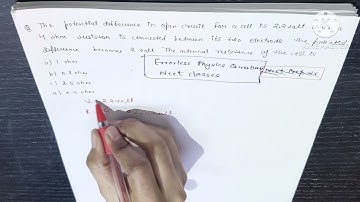 Q. The potential difference in open circuit for a cell is 2.2 volt
4 ohm resistor is connected between its two electrode the potential
difference becomes 2 volt. The internal resistance of the cell is
a) 1 ohm
b) 0.2 ohm
c) 2.5 ohm
d) 0.4 ohm
Errorless Physics Question
Neet classes
Neet Prepare
2.2 volt